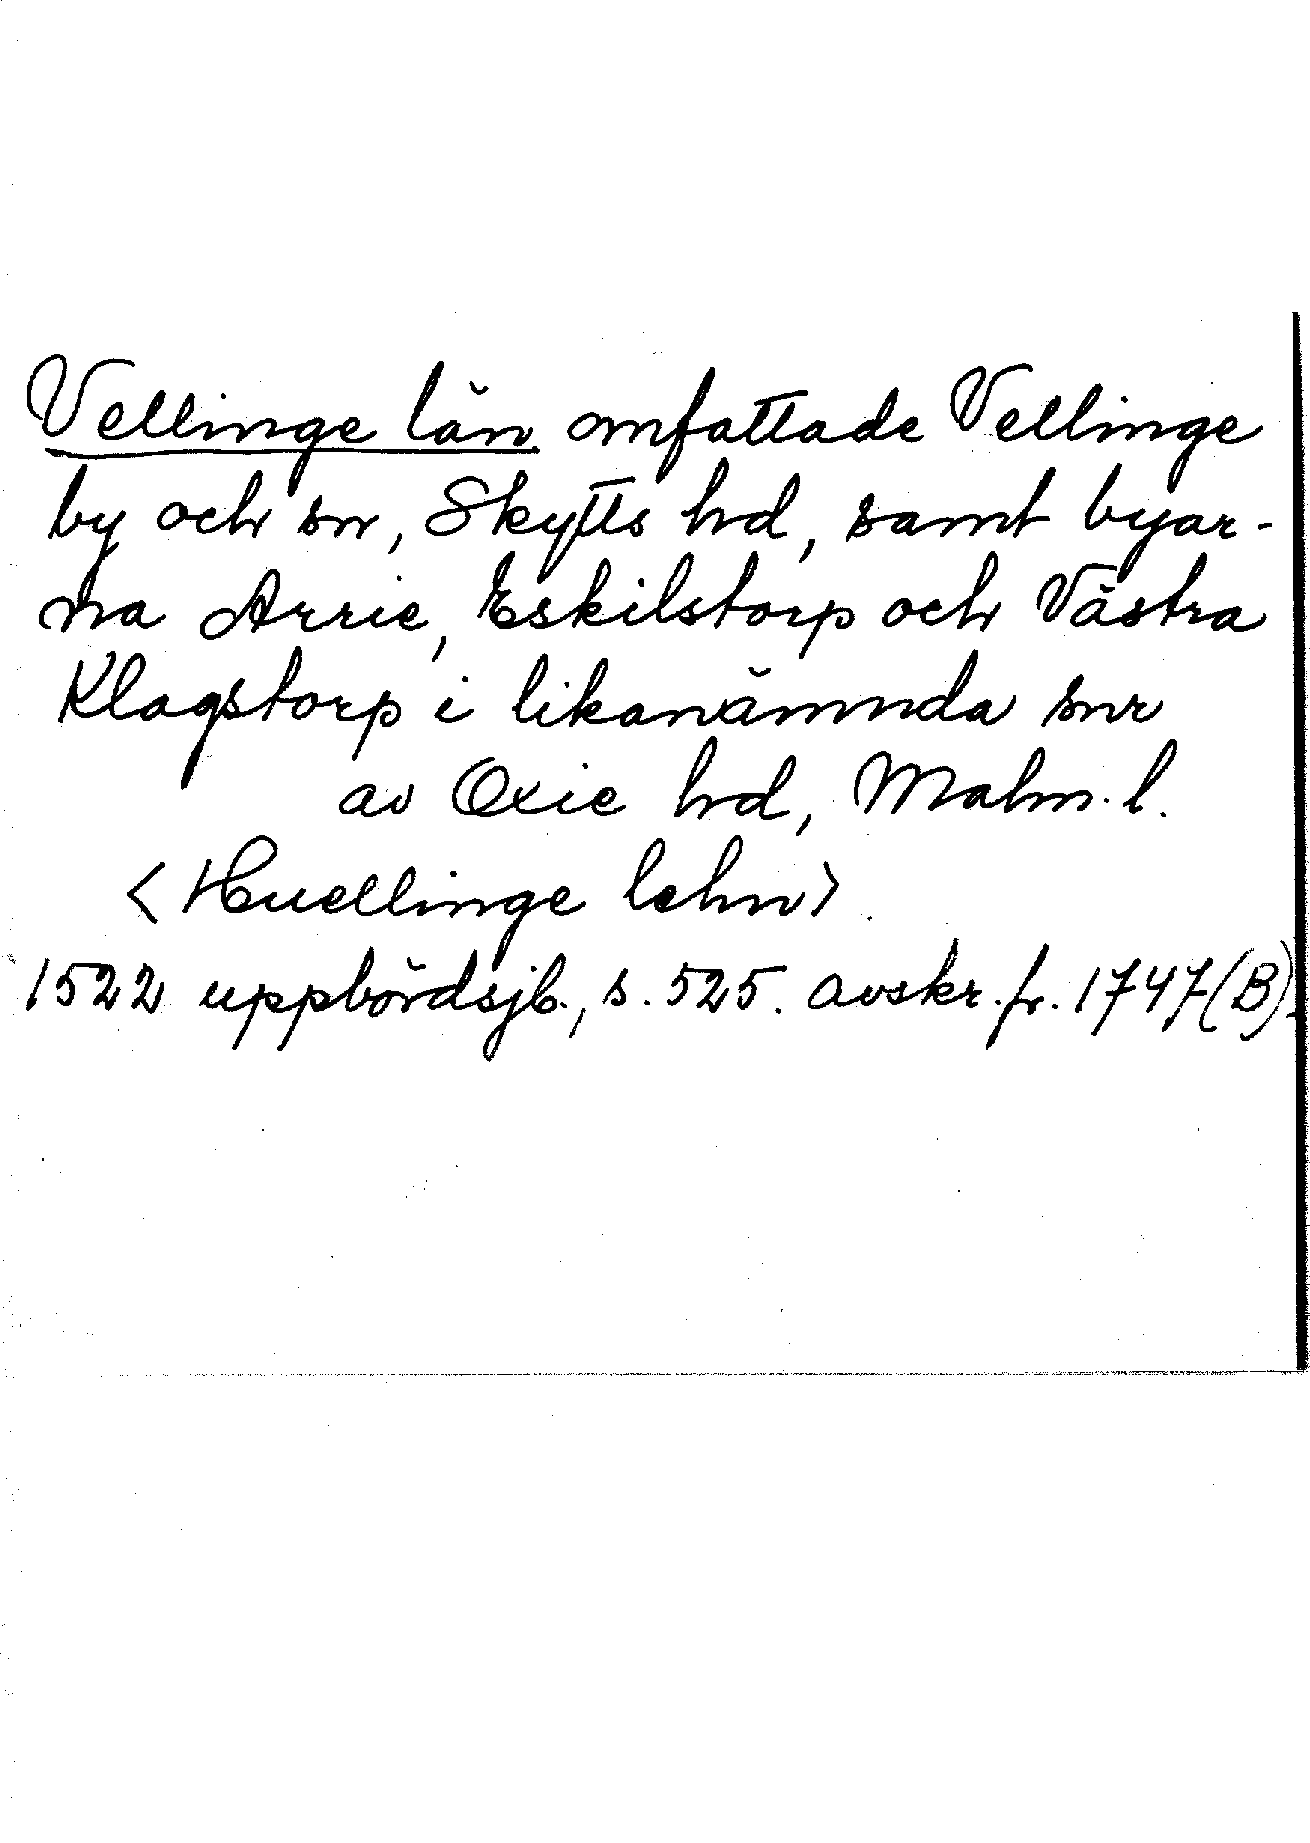 Vellinge län omfattade Vellinge
by och sn, Skytts hd, samt byar-
na Arrie, Eskilstorp och Västra
Klagstorp i likanämnda snr
av Oxie hd, Malm. l.
<Huellinge lehn>
1522 uppbördsjb., s. 525. avskr. fr. 1747 (B).